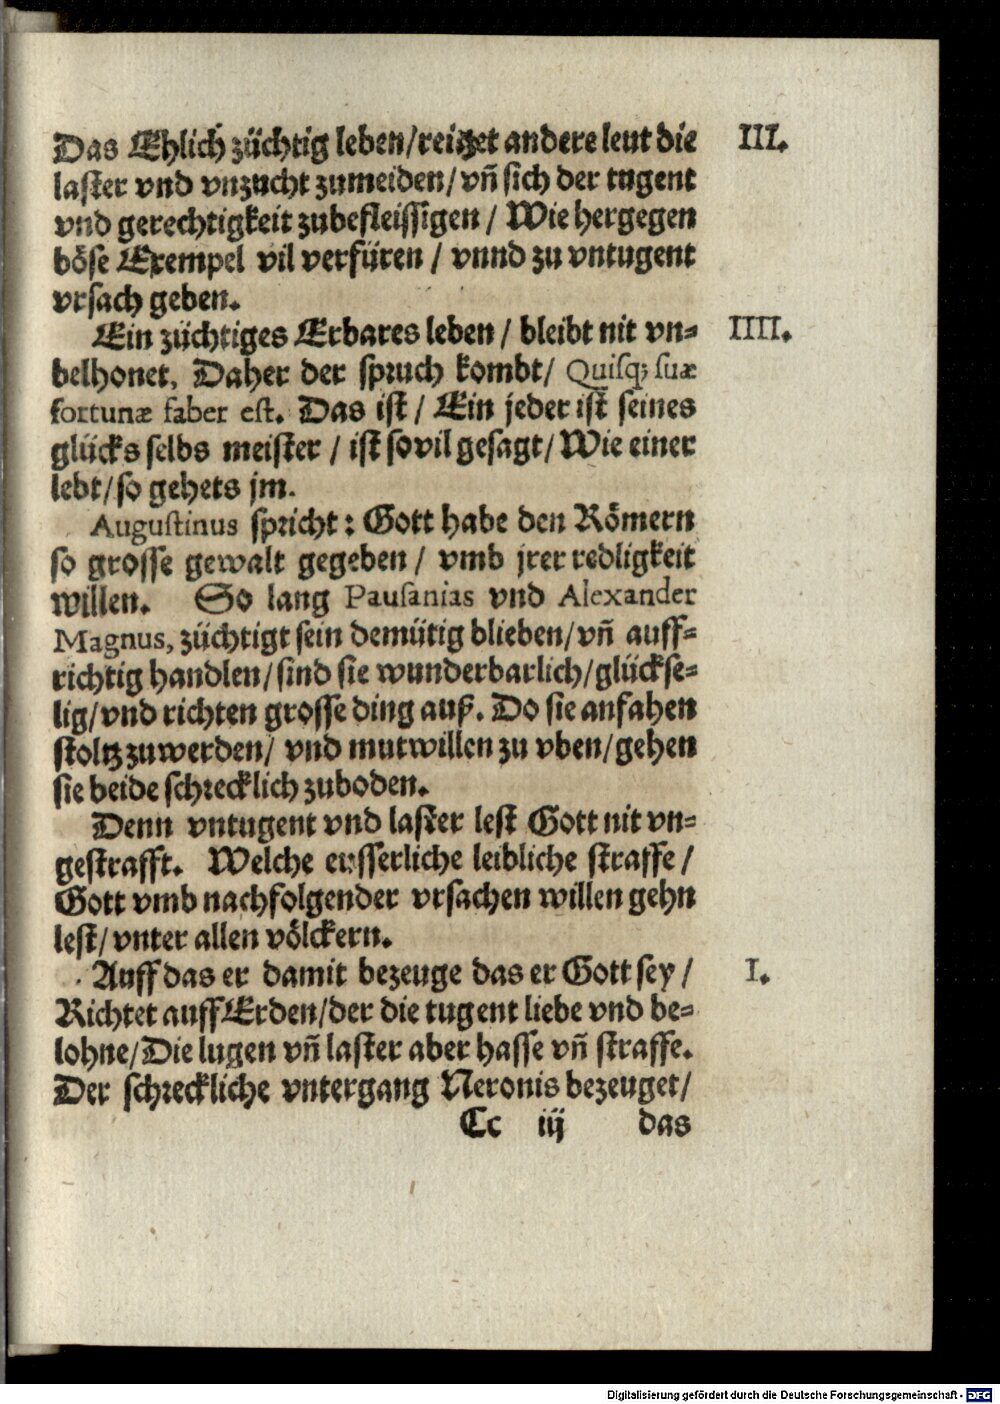 Das Ehlich züchtig leben/reitzet andere leut die III.
laster vnd vnzucht zumeiden/vñ sich der tugent
vnd gerechtigkeit zubefleissigen / Wie hergegen
böse Exempel vil verfüren / vnnd zu vntugent
vrsach geben.
Ein züchtiges Erbares leben / bleibt nit vn= IIII.
belhonet, Daher der spruch kombt/ Quisq; suæ
fortunæ faber est. Das ist / Ein jeder ist seines
glücks selbs meister / ist sovil gesagt/Wie einer
lebt/so gehets jm.
Augustinus spricht: Gott habe den Römern
so grosse gewalt gegeben / vmb jrer redligkeit
willen. So lang Pausanias vnd Alexander
Magnus, züchtigt sein demütig blieben/vñ auff=
richtig handlen/sind sie wunderbarlich/glückse=
lig/vnd richten grosse ding auß. Do sie anfahen
stoltz zuwerden/ vnd mutwillen zu vben/gehen
sie beide schrecklich zuboden.
Denn vntugent vnd laster lest Gott nit vn=
gestrafft. Welche eusserliche leibliche straffe /
Gott vmb nachfolgender vrsachen willen gehn
lest/vnter allen völckern.
Auff das er damit bezeuge das er Gott sey / I.
Richtet auff Erden/der die tugent liebe vnd be=
lohne/Die lugen vñ laster aber hasse vñ straffe.
Der schreckliche vntergang Neronis bezeuget/
Cc iij das
Digitalisierung gefördert durch die Deutsche Forschungsgemeinschaft - DFG